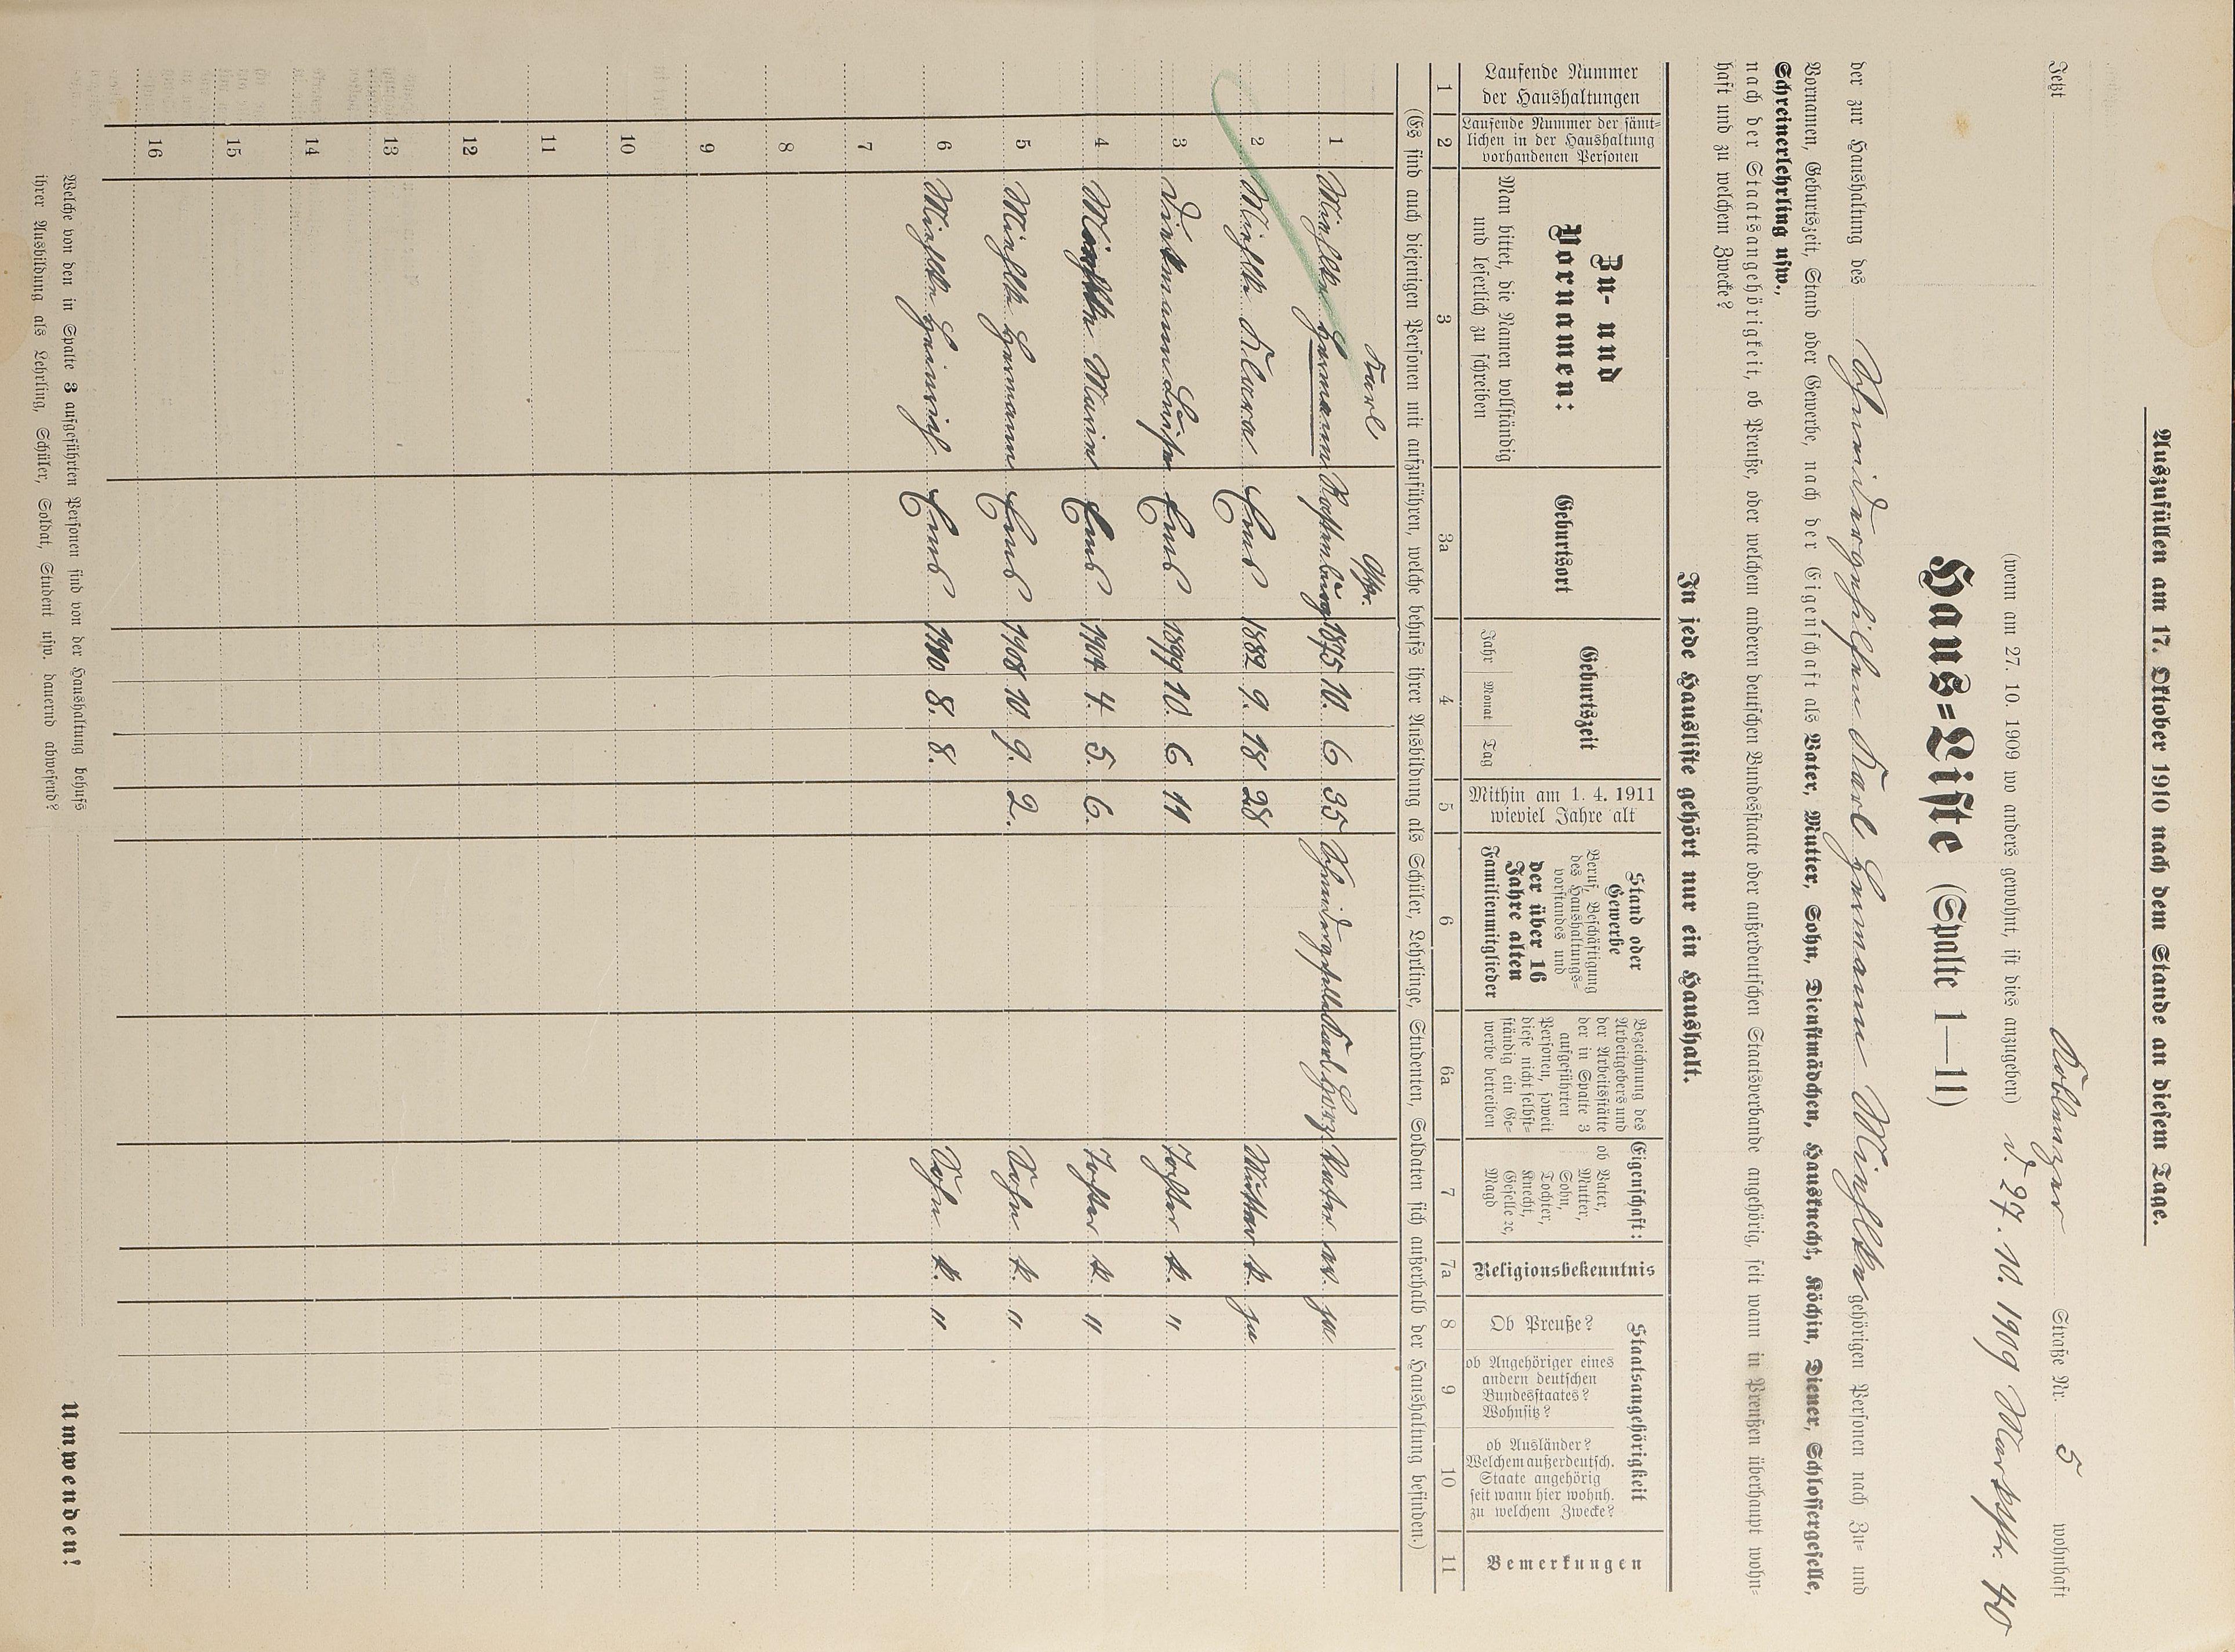 Auszufüllen am 17. Oktober 1910 nach dem Stande an diesem Tage.
Jetzt Koblenzer Straße Nr. 5 wohnhaft
(wenn am 27. 10. 1909 wo anders gewohnt, ist dies anzugeben) d. 27. 10. 1909 Marktstr. 40
Haus=Liste (Spalte 1—11)
der zur Haushaltung des Schneidergehilfen Karl Hermann gehörigen Personen nach Zu= und
Vornamen, Geburtszeit, Stand oder Gewerbe, nach der Eigenschaft als Vater, Mutter, Sohn, Dienstmädchen, Hausknecht, Köchin, Diener, Schlossergeselle,
Schreinerlehrling usw.,
nach der Staatsangehörigkeit, ob Preuße, oder welchem anderen deutschen Bundesstaate oder außerdeutschen Staatsverbande angehörig, seit wann in Preußen überhaupt wohn=
haft und zu welchem Zwecke?
In jede Hausliste gehört nur ein Haushalt.
Laufende Nummer
der Haushaltungen
Laufende Nummer der sämt=
lichen in der Haushaltung
vorhandenen Personen
Zu- und
Vornamen:
Man bittet, die Namen vollständig
und leserlich zu schreiben
Geburtsort
Geburtszeit
Jahr Monat Tag
Mithin am 1. 4. 1911
wieviel Jahre alt
Stand oder
Gewerbe
Beruf, Beschäftigung
des Haushaltungs=
vorstandes und
der über 16
Jahre alten
Familienmitglieder
Bezeichnung des
Arbeitgebers und
der Arbeitsstätte
der in Spalte 3
aufgeführten
Personen, soweit
diese nicht selbst=
ständig ein Ge=
werbe betreiben
Eigenschaft:
ob Vater,
Mutter,
Sohn,
Tochter,
Knecht,
Geselle ec,
Magd
Religionsbekenntnis
Staatsangehörigkeit
Ob Preuße?
ob Angehöriger eines
andern deutschen
Bundesstaates?
Wohnsitz?
ob Ausländer?
Welchem außerdeutsch.
Staate angehörig
seit wann hier wohnh.
zu welchem Zwecke?
Bemerkungen
1 2 3 3a 4 5 6 6a 7 7a 8 9 10 11
(Es sind auch diejenigen Personen mit aufzuführen, welche behufs ihrer Ausbildung als Schüler, Lehrlinge, Studenten, Soldaten sich außerhalb der Haushaltung befinden.)
Karl Ostpr.
1 Hermann 1875 10. 6 35 Schneidergeselle Karl Vater ev. ja
2 Klara Ems 1882 9. 18 28 Mutter k. ja
3 Luise Ems 1899 10. 6 11 Tochter k. "
4 Maria Ems 1904 4. 5. 6. Tochter k. "
5 Hermann Ems 1908 10 9. 2. Sohn k. "
6 Heinrich Ems 1910 8. 8. Sohn k. "
7
8
9
10
11
12
13
14
15
16
Welche von den in Spalte 3 aufgeführten Personen sind von der Haushaltung behufs
ihrer Ausbildung als Lehrling, Schüler, Soldat, Student usw. dauernd abwesend?
Umwenden!